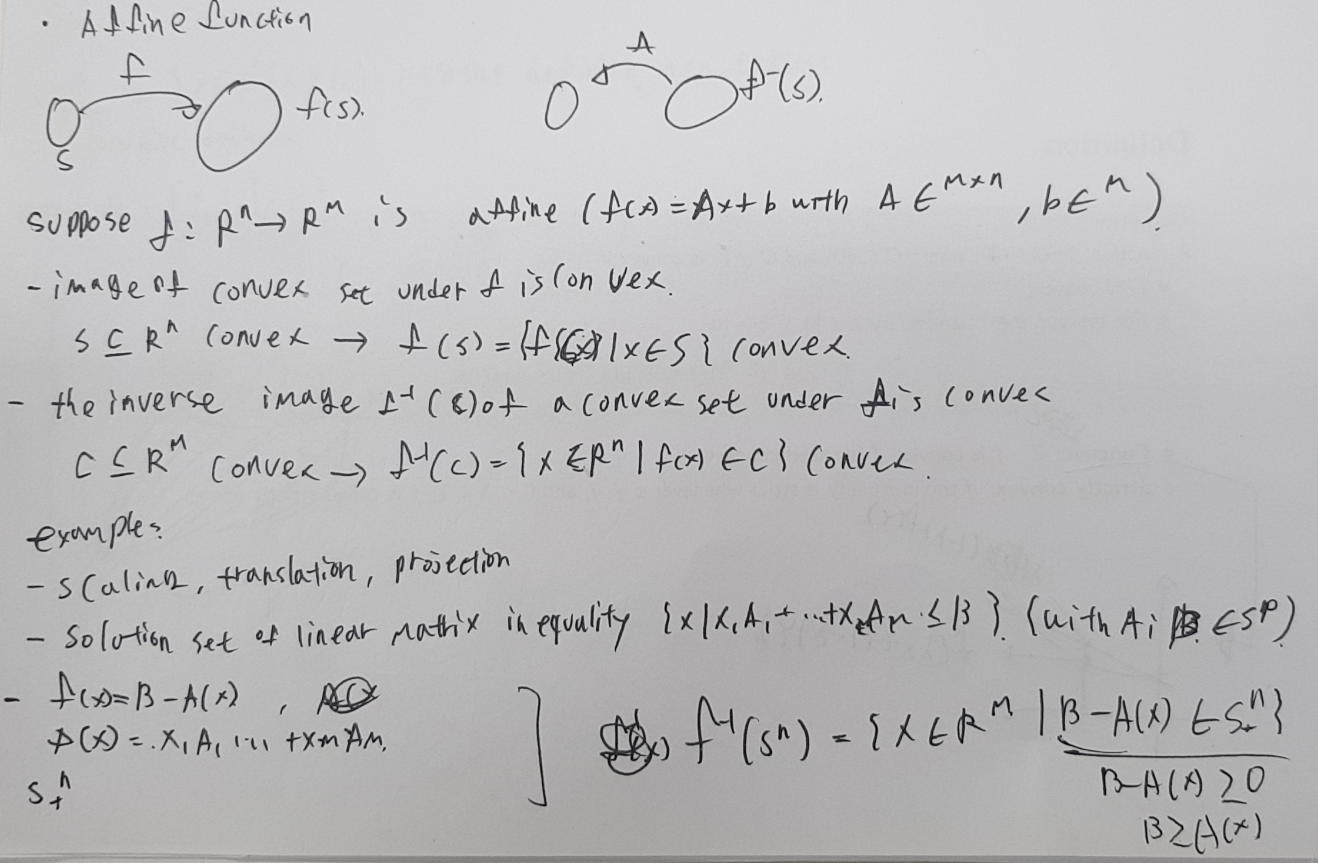 · Affine function
f
A
S
f(s).
f⁻(s).
suppose f: Rⁿ → Rᵐ is affine (f(x) = Ax + b with A ∈ ᵐˣⁿ, b ∈ ᵐ)
- image of convex set under f is convex.
S ⊆ Rⁿ convex → f(s) = {f(x) | x ∈ S} convex.
- the inverse image f⁻¹(c) of a convex set under f is convex
C ⊆ Rᵐ convex → f⁻¹(c) = {x ∈ Rⁿ | f(x) ∈ C} convex.
examples
- scaling, translation, projection
- solution set of linear matrix inequality {x | x₁A₁ + ... + xₘAₘ ≤ B}. (with Ai B ∈ Sᵖ)
- f(x) = B - A(x) ,
A(x) = x₁A₁ ... + xmAm.
S₊ⁿ
] f⁻¹(sⁿ) = {x ∈ Rᵐ | B - A(x) ∈ S₊ⁿ}
B-A(x) ≥ 0
B ≥ A(x)